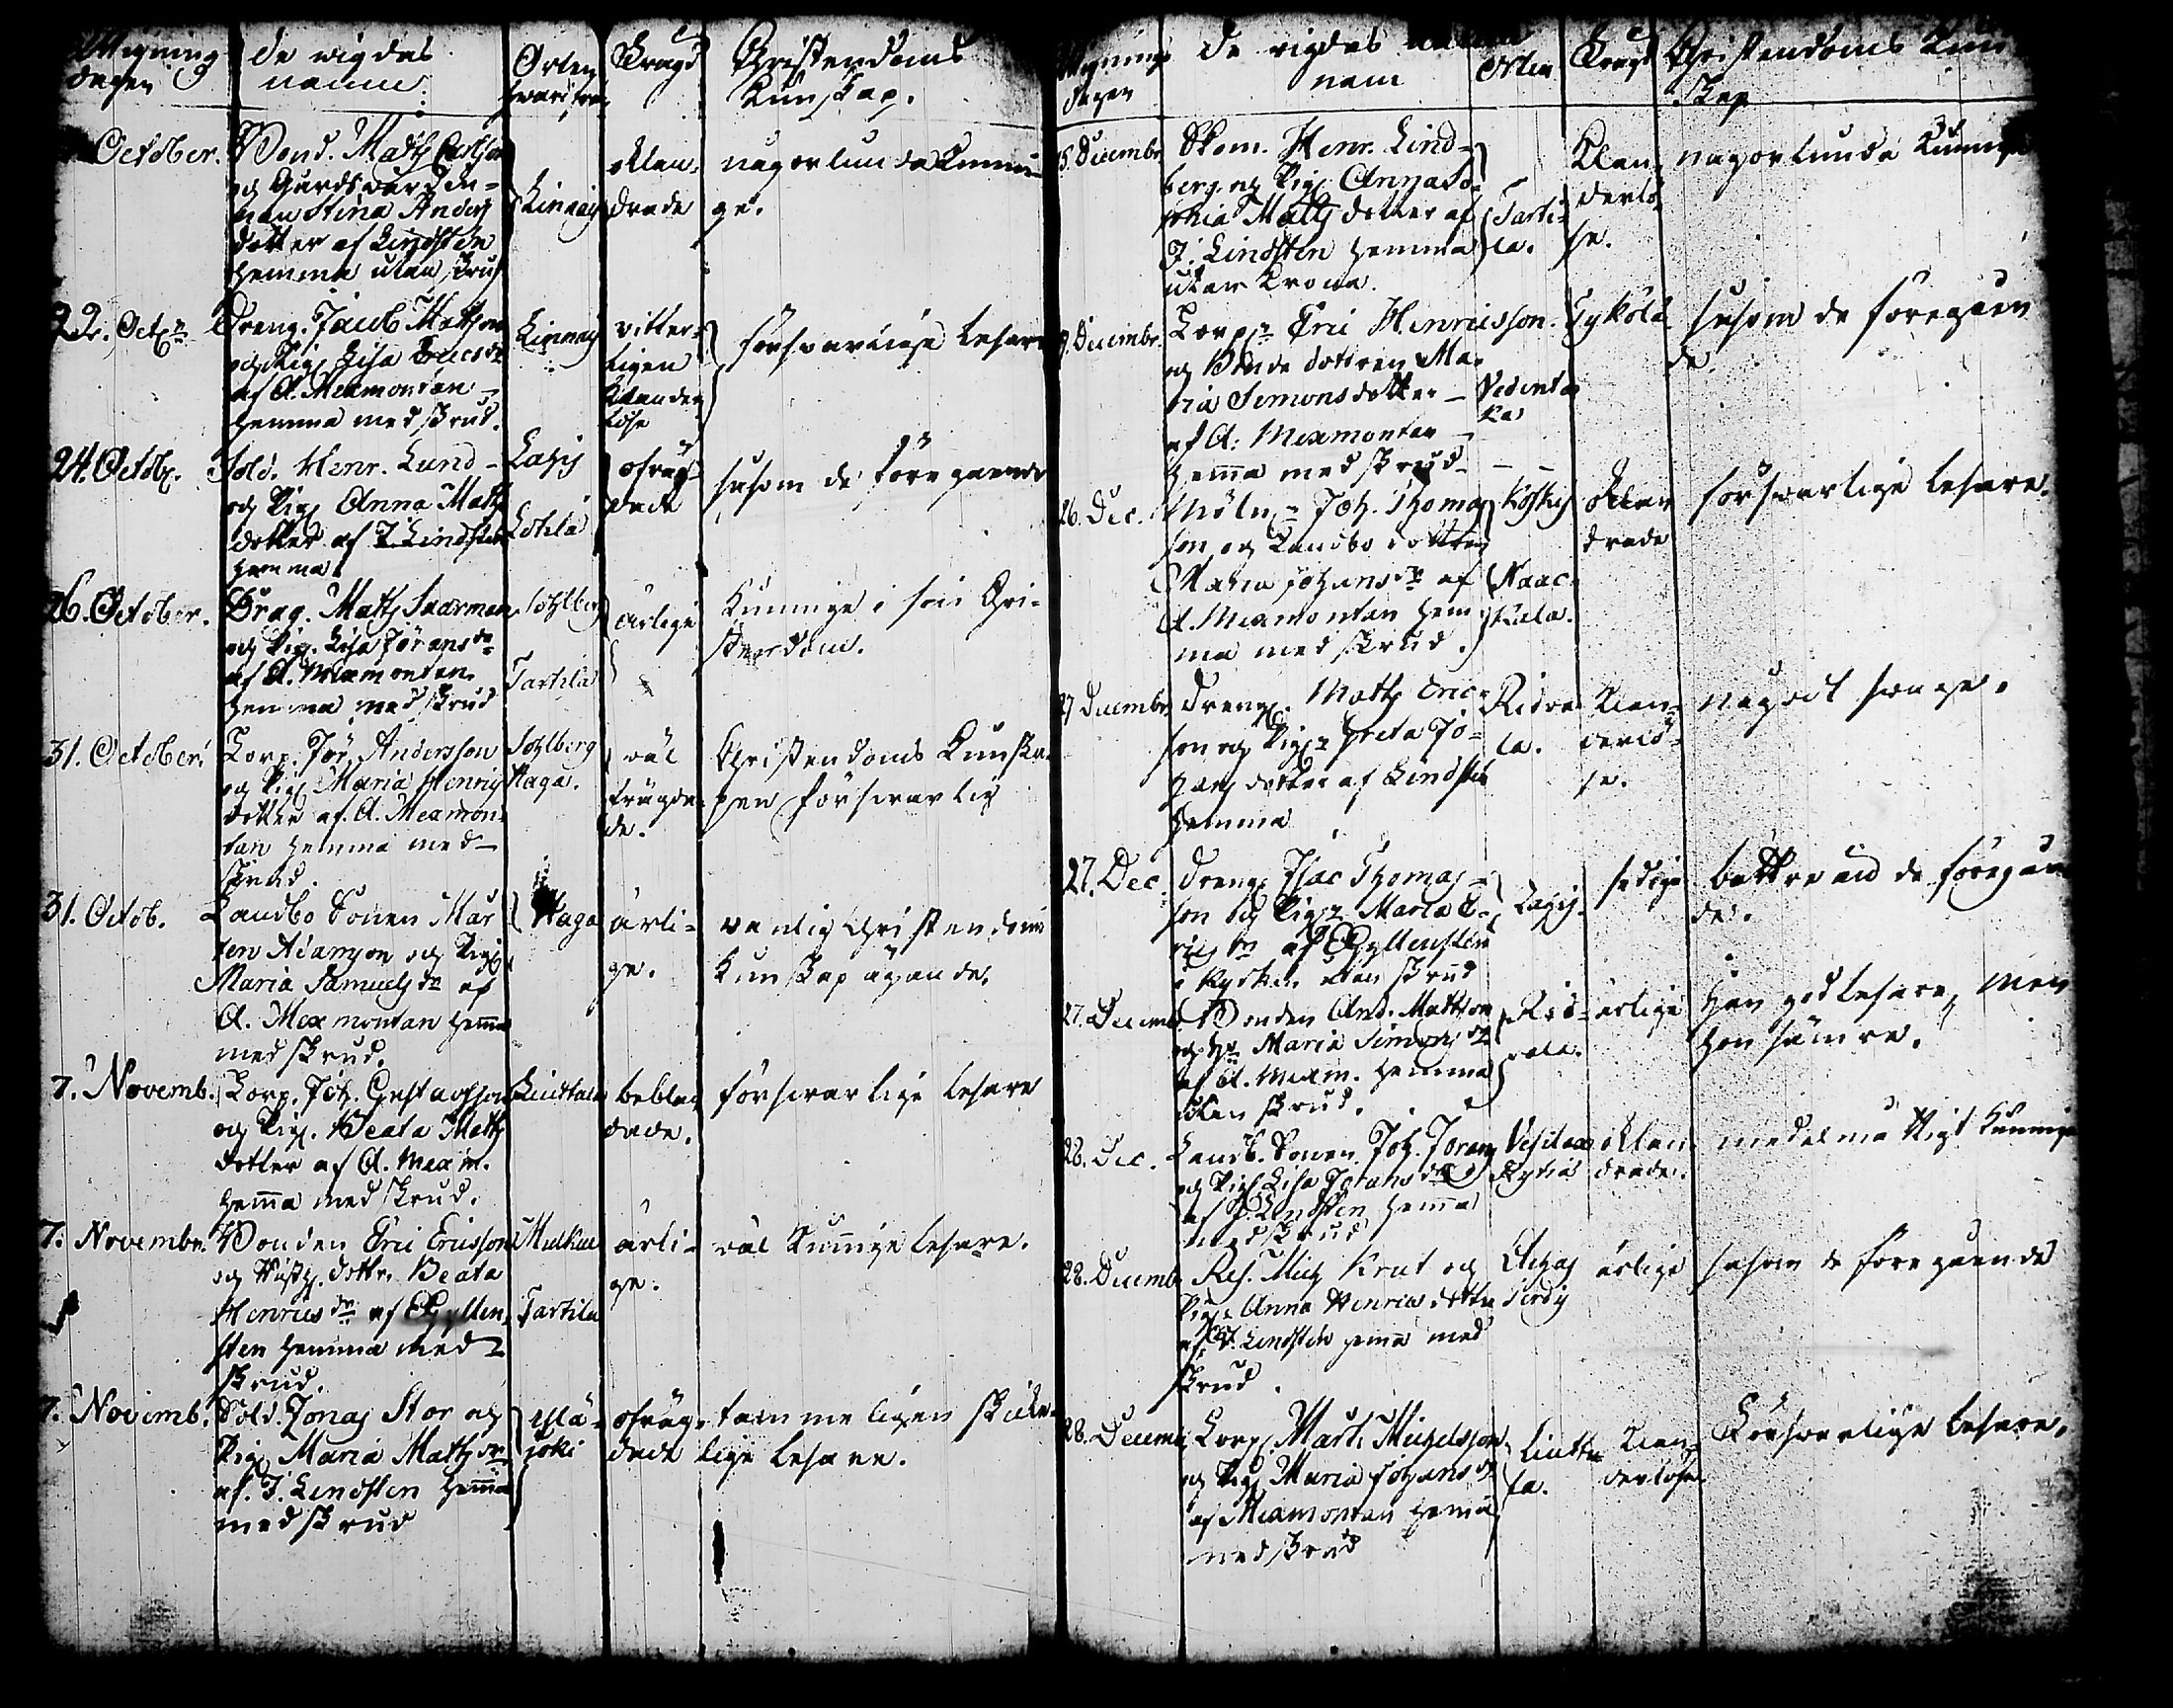 Wignings
dagen
de wigdas
namn.
Orten
hwarifrån
Frägd
Christendoms
Kunskap.
October.
Bond. Matts
og Gårdswärdin-
nan Stina Anders
dotter af Lindsten
hemma utan skrud
oklan-
drade
någorlunda kunni-
ge.
22. Octr
Dreng. Jacob Matsson
og Pig. Lisa Ericsdr
af A. Mexmontan
hemma med skrud.
vitter-
ligen
klander
löse
försvarlige läsare
24. Octob.
Sold. Henr. Lund
og Pig. Anna Matts
dotter af J. Lindsten
hemma
ofräg-
dade
såsom de föregående
26. October.
Drag. Matts Saxman
og Pig. Lisa Jöransdr
af A. Mexmontan
hemma med skrud
Sohlberg
Tartila
ärlige
kunnige i sin Chri-
stendom.
31. October.
Corp. Jör. Andersson
og Pig. Maria Henrics
dotter af A. Mexmon-
tan hemma med
skrud.
Sohlberg
Haga.
väl
frägda-
de.
Christendoms Kunska-
pen försvarlig
31. Octob.
Landbo Sonen Mår
ten Adamsson og Pig.
Maria Samuelsdr af
A. Mexmontan hema
med skrud.
Haga
ärli-
ge.
vanlig Christendoms
Kunskap ägande.
7. Novemb.
Corp. Joh. Gustafsson
og Pig. Beata Matts
dotter af A. Mexm.
hema med skrud.
Liuttala
beblan
dade.
försvarlige läsare
7. Novembr.
Bonden Eric Ericsson
og dottr. Beata
Henricsdr af Gyllen-
sten hemma med
skrud.
Tartila
ärli-
ge.
väl kunnige läsare.
7. Novemb.
Sold. Jonas Stor og
Pig. Maria Mattsdr
af J. Lindsten hema
med skrud
joki
ofräg-
dade
tämmeligen skicke-
lige läsare.
Wignings
dagen
de vigdas
namn
Orten
Frägd
Christendoms Kun
skap
5. Decembr
Skom. Henr. Lind-
berg og Pig. Anna So-
phia Matts dotter af
J. Lindsten hemma
utan Krona.
Tarti-
la.
klan
derlö-
se.
någorlunda kunnige
Decembr.
Corpr Eric Henricsson
og Bonde dottren Ma-
ria Simonsdotter
af A. Mexmontan
hema med skrud
såsom de föregåen
de.
26. Dec.
Möln. Joh. Thomas
son og Landbo dottren
Maria Johansdr af
A. Mexmontan hem
ma med skrud.
Koskis
oklan
drade
försvarlige läsare.
27 Decembr
Dreng. Matts Eric-
son og Pigr Greta Jo-
hans dotter af Lindsten
hemma
Ridva
la.
klan-
derlö-
se.
något svage.
27. Dec.
Dreng. Isac Thomas-
son og Pigr Maria E-
ricsdr af Gyllensten
i kyrkan utan skrud
sedige
bättre än de föregåen
de.
27. Decemb
Bonden And. Mattsson
og Maria Simonsdr
af A. Mexm. hemma
utan skrud.
Rid-
vala.
ärlige
han god läsare, men
hon sämre.
28. Dec.
Landb. Sonen Joh. Jörans
og Pig. Lisa Johansdr
af J. Lindsten hema
med skrud
oklan
drade.
medelmåttigt kunnige
28. Decemb
Res. Mich. Krut og
Pigr Anna Henricsdotter
af J. Lindsten hema med
skrud.
ärlige
såsom de föregående
28. Decemb
Corp. Mårt. Michelsson
og Pig. Maria Johansdr
af Mexmontan hema
med skrud
Liutta
la.
klan-
derlöse
Försvarlige läsare.